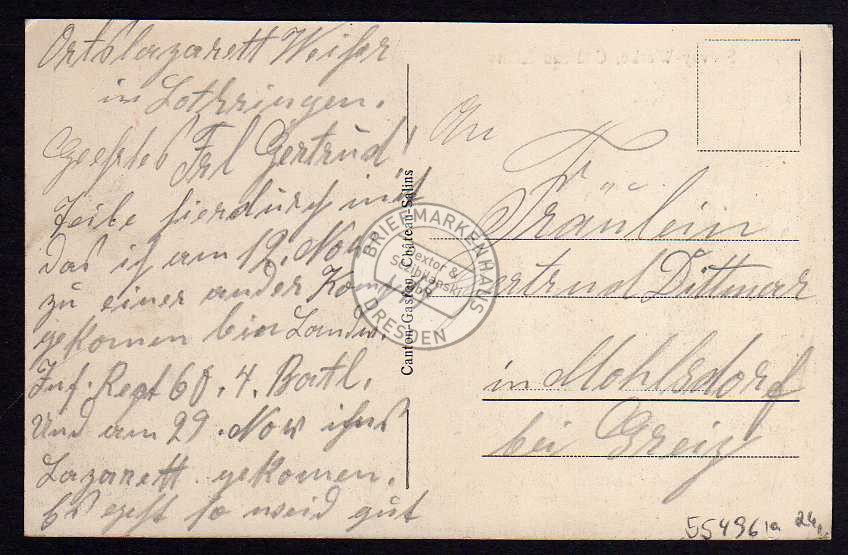 Ortslazarett Weiher
in Lothringen.
Geehrtes Frl Gertrud!
Teile hierdurch mit
das ich am 12. Nov
zu einer ander Komp
gekomen bin Landw.
Inf. Regt 60. 4. Batl.
Und am 29. Nov ins
Lazarett gekomen.
Es geht so weid gut
Canton-Gasten, Château-Salins
An
Fräulein
Gertrud Dittmar
in Mohlsdorf
bei Greiz
BRIEFMARKENHAUS
DRESDEN
55496